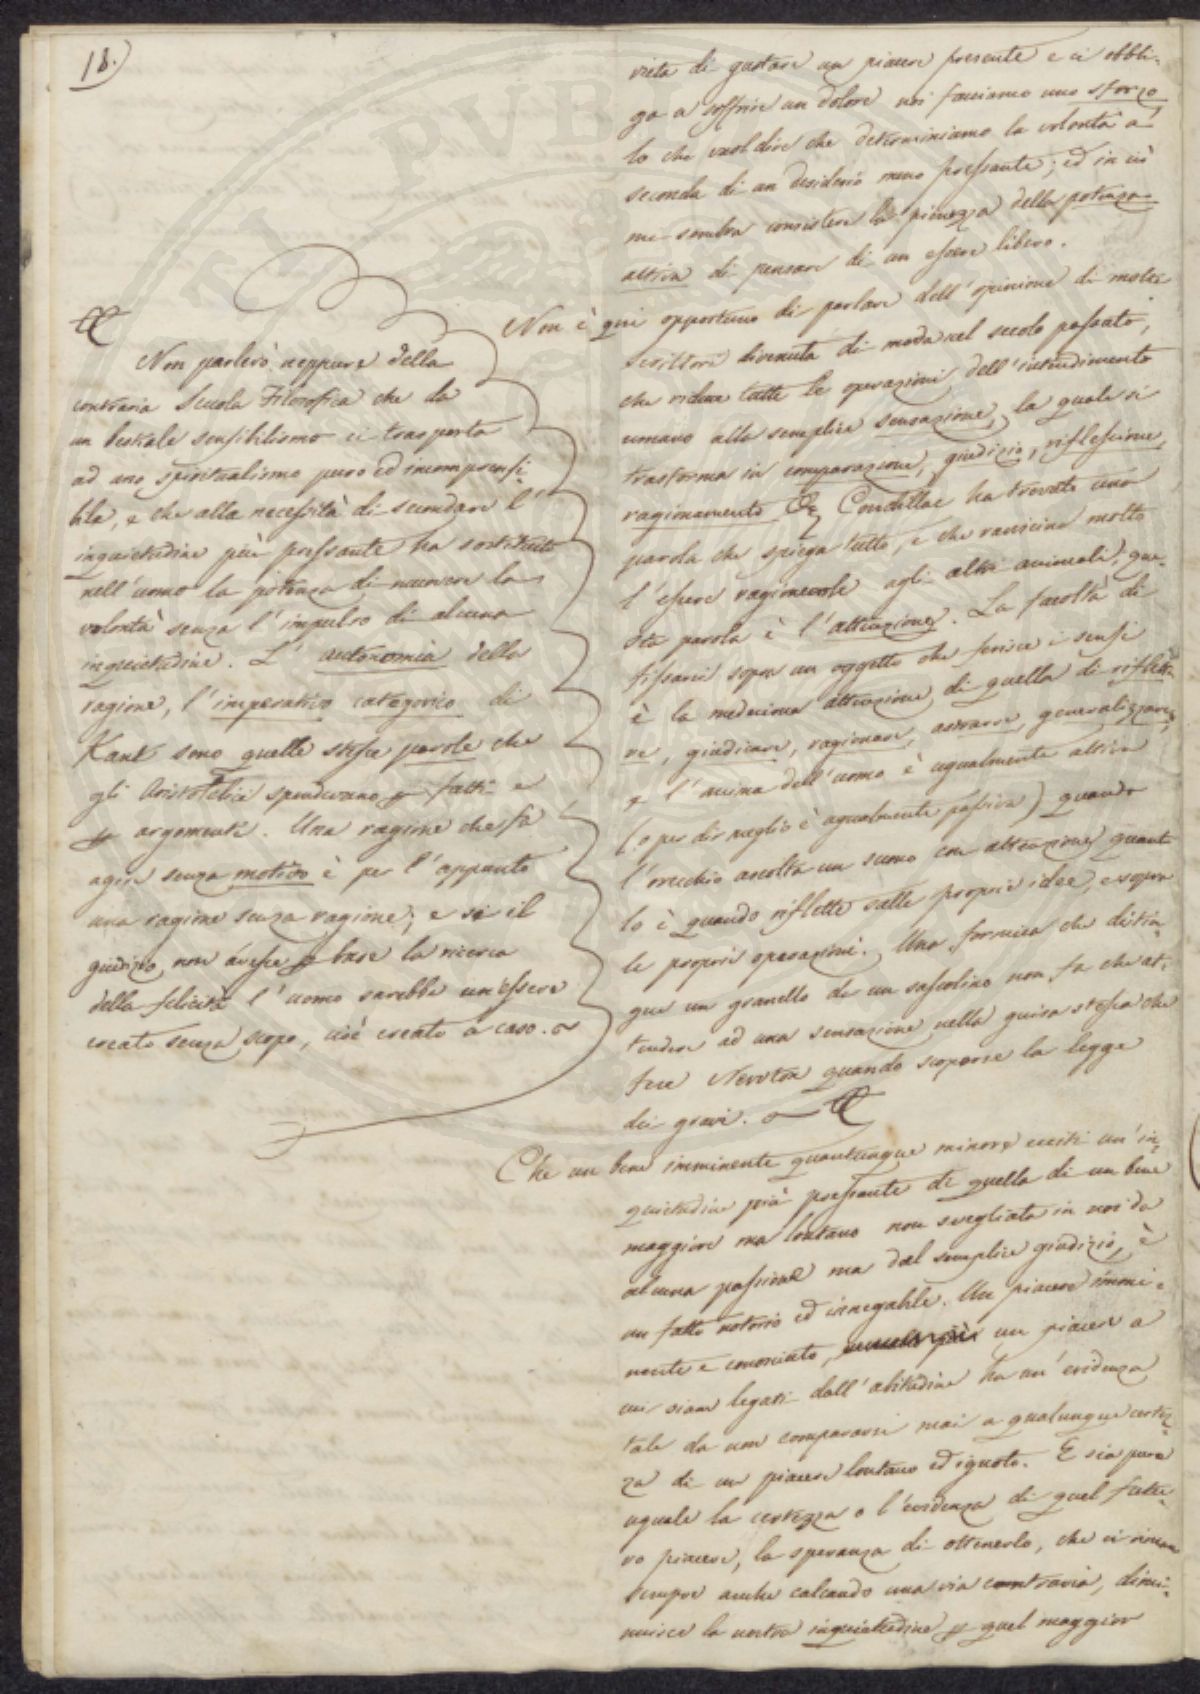 18.)
vieta di gustare un piacere presente e ci obbli-
ga a soffrire un dolore noi facciamo uno sforzo,
lo che vuol dire che determiniamo la volontà a
seconda di un desiderio meno pressante; ed in ciò
mi sembra consistere la pienezza della potenza
attiva di pensare di un essere libero.
Non è qui opportuno di parlare dell'opinione di molti
scrittori divenuta di moda nel secolo passato,
che riduce tutte le operazioni dell'intendimento
umano alla semplice sensazione, la quale si
trasforma in comparazione, giudizio, riflessione,
ragionamento &c. Condillac ha trovato una
parola che spiega tutto, e che ravvicina molto
l'essere ragionevole agli altri animali, que-
sta parola è l'attenzione. La facoltà di
fissarci sopra un oggetto che ferisce i sensi
è la medesima attenzione di quella di riflette-
re, giudicare, ragionare, astrarre, generalizzare,
e l'anima dell'uomo è ugualmente attiva
(o per dir meglio è ugualmente passiva) quando
l'orecchio ascolta un suono con attenzione quanto
lo è quando riflette sulle proprie idee, e sopra
le proprie operazioni. Una formica che distin-
gue un granello da un sassolino non fa che at-
tendere ad una sensazione nella guisa stessa che
fece Newton quando scoperse la legge
dei gravi.
Che un bene imminente quantunque minore ecciti un'in-
quietudine più pressante di quella di un bene
maggiore ma lontano non svegliata in noi da
alcuna passione ma dal semplice giudizio, è
un fatto notorio ed innegabile. Un piacere immi-
nente e conosciuto, un piacere a
cui siam legati dall'abitudine ha un'evidenza
tale da non compararsi mai a qualunque certez-
za di un piacere lontano ed ignoto. E sia pure
uguale la certezza o l'evidenza di quel futu-
ro piacere, la speranza di ottenerlo, che ci rimane
sempre anche calcando una via contraria, dimi-
nuisce la nostra inquietudine p quel maggior
Non parlerò neppure della
contraria Scuola Filosofica che da
un bestiale sensibilismo ci trasporta
ad uno spiritualismo puro ed incomprensi-
bile, e che alla necessità di secondare l'
inquietudine più pressante ha sostituito
nell'uomo la potenza di muovere la
volontà senza l'impulso di alcuna
inquietudine. L'autonomia della
ragione, l'imperativo categorico di
Kant sono quelle stesse parole che
gli Aristotelici spendevano p fatti e
p argomenti. Una ragione che fà
agire senza motivo è per l'appunto
una ragione senza ragione; e se il
giudizio non avesse p base la ricerca
della felicità l'uomo sarebbe un essere
creato senza scopo, cioè creato a caso.